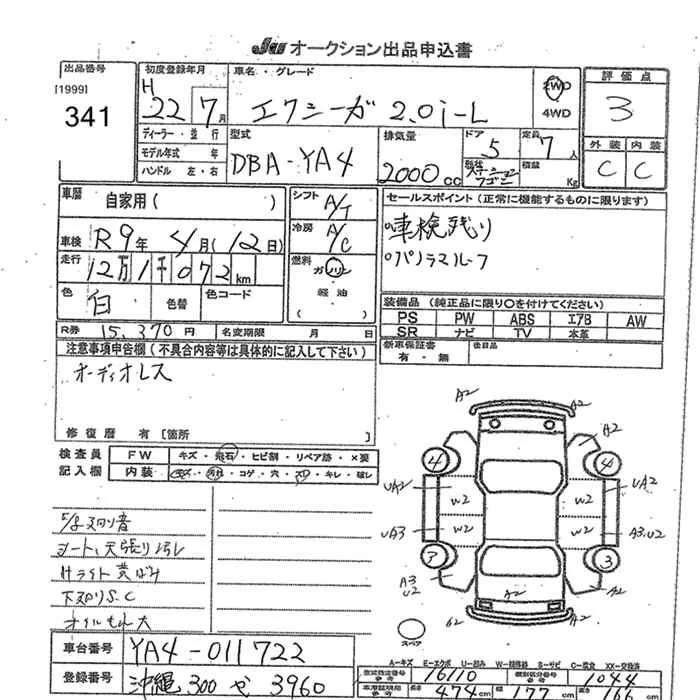 JU オークション出品申込書
出品番号
[1999]
341
初度登録年月
H 22 7月
ディーラー・並行
モデル年式 年
ハンドル 左・右
車名・グレード
エクシーガ 2.0i-L
2WD
4WD
型式
DBA-YA4
排気量
2000cc
ドア
5
定員
7人
形状
ステーションワゴン
積載
Kg
評価点
3
外装 内装
C C
車歴 自家用( )
車検 R9年 4月(12日)
走行 12万1千072km
色 白 色替 色コード
シフト A/T
冷房 A/C
燃料 ガソリン
軽油
( )
セールスポイント(正常に機能するものに限ります)
車検残り
パノラマルーフ
装備品(純正品に限り○を付けてください)
PS PW ABS エアB AW
SR ナビ TV 本革
新車保証書
有・無
後日品
R券 15,370円 名変期限 月 日
注意事項申告欄(不具合内容等は具体的に記入して下さい)
オーディオレス
修復歴 有[箇所 ]
検査員
記入欄
FW キズ・飛石・ヒビ割・リペア跡・×要
内装 キズ・汚れ・コゲ・穴・スレ・キレ・破レ
シート、天張り汚レ
Hライト黄ばみ
下廻りS.C
車台番号 YA4-011722
登録番号 沖縄 300 せ 3960
A2 A2
A2 A2
4 4
UA2 W2 W2 UA2
UA3 W2 W2 A3.U2
7 3
A3
U2
A2
A2
スペア
A-キズ E-エクボ U-凹み W-補修跡 S-サビ C-腐食 XX-交換済
型式指定番号
参考
16110
類別区分番号
参考
1044
車庫証明用
参考
長さ 474cm 幅 177cm 高さ 166cm